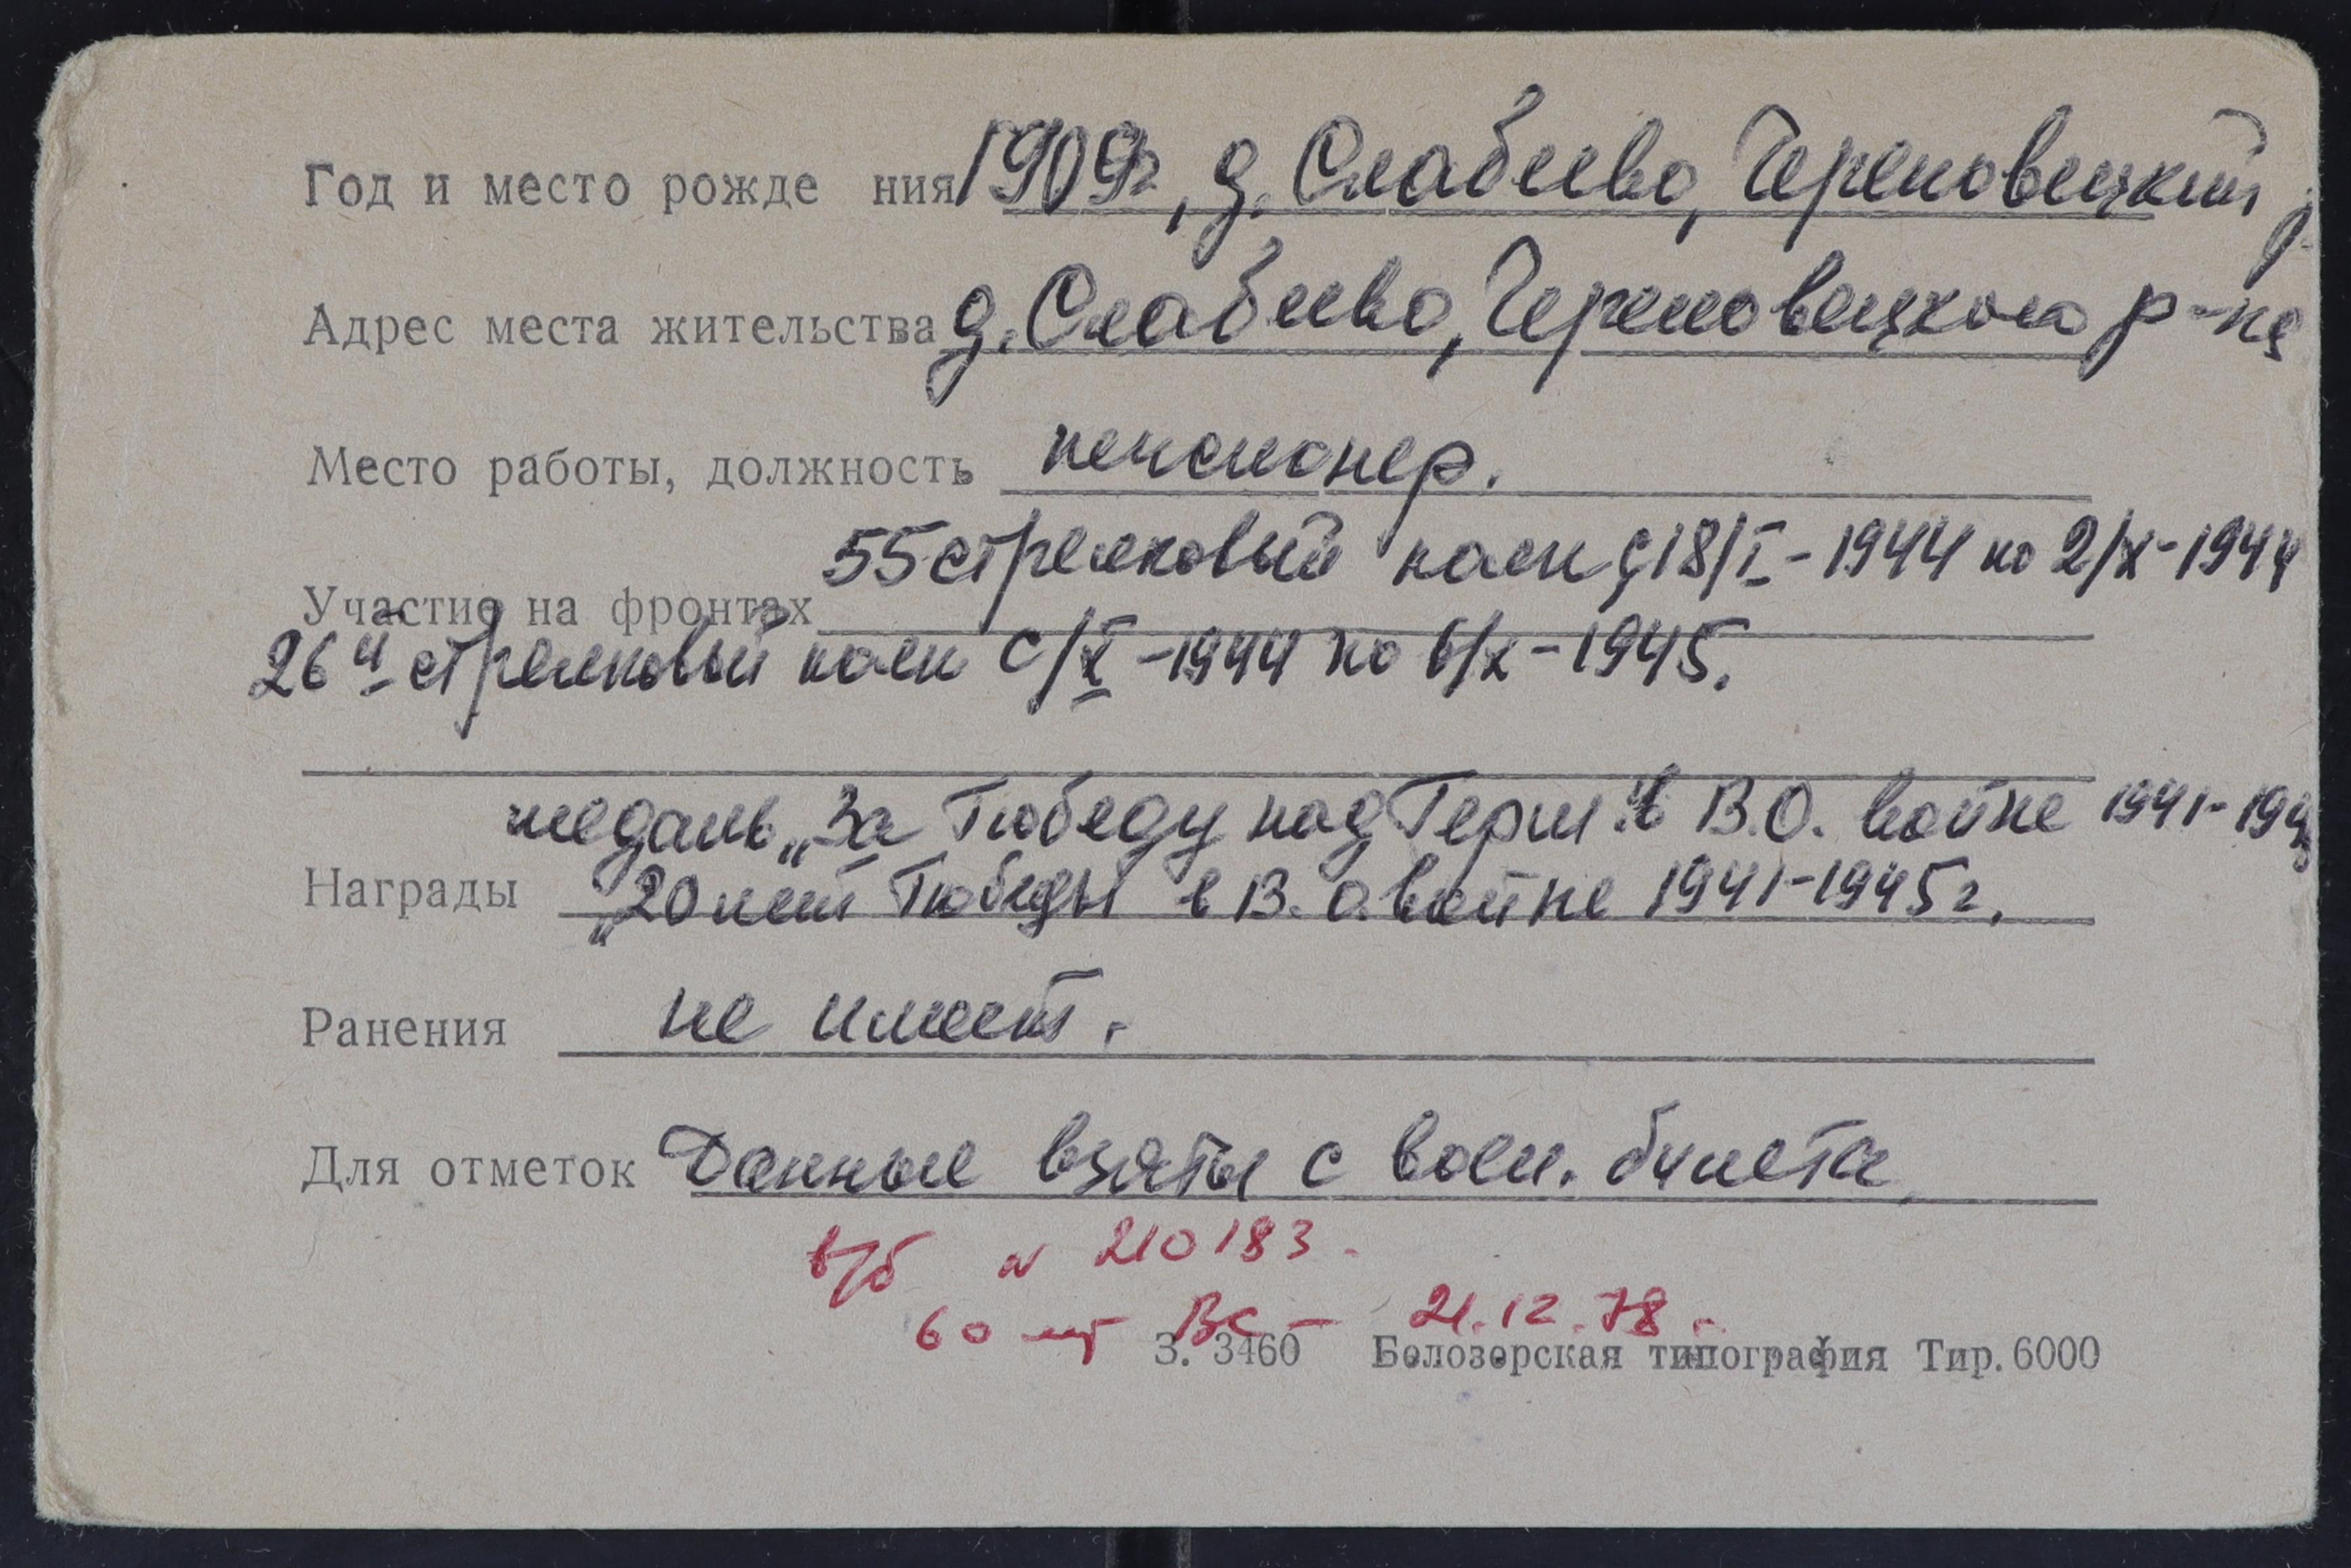 Год и место рожде ния 1909г, д. Слабеево, Череповецкий р
Адрес места жительства д. Слабеево, Череповецкого р-на
Место работы, должность пенсионер.
55 стрелковый полк с 18/I-1944 по 2/X-1944
Участие на фронтах
26й стрелковый полк с /X-1944 по 6/X-1945.
медаль „За Победу над Герм." в В.О. войне 1941-194
Награды „20 лет Победы в В.О войне 1941-1945г.
Ранения не имеет.
Для отметок Данные взяты с воен. билета
в/б N 210183.
60 лет ВС - 21.12.78.
З. 3460 Белозерская типография Тир. 6000